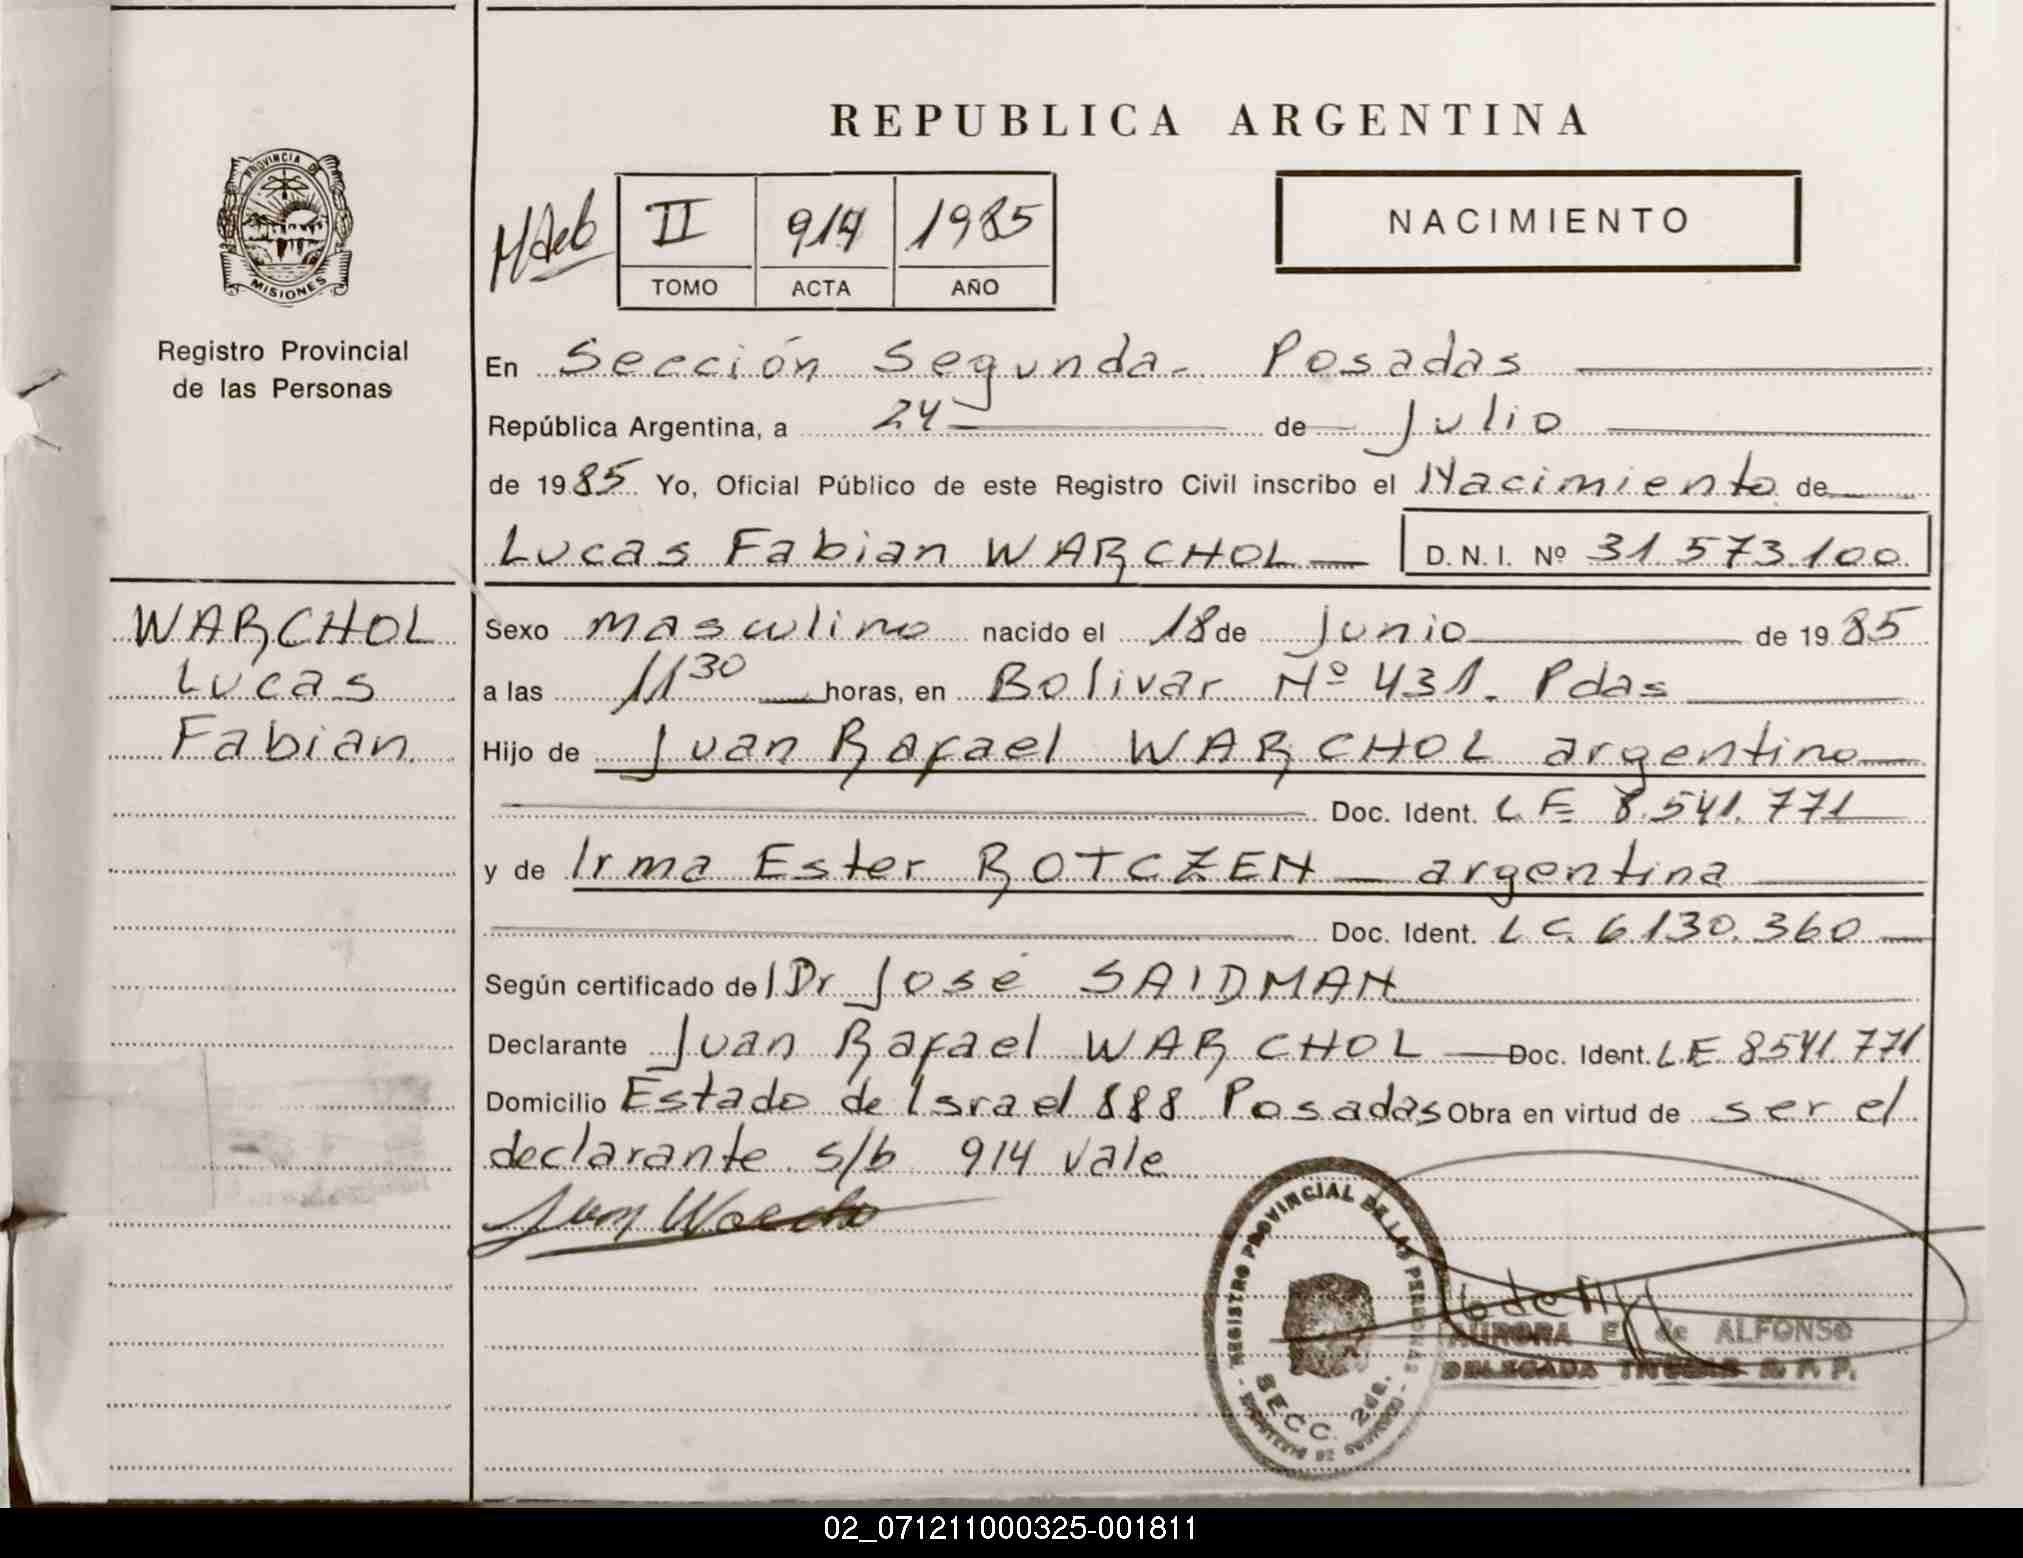 REPUBLICA ARGENTINA
PROVINCIA DE
MISIONES
Registro Provincial
de las Personas
II 914 1985
TOMO ACTA AÑO
NACIMIENTO
En Sección Segunda - Posadas
República Argentina, a 24 de Julio
de 1985 Yo, Oficial Público de este Registro Civil inscribo el Nacimiento de
Lucas Fabian WARCHOL D. N. I. Nº 31.573.100
WARCHOL
Lucas
Fabian
Sexo masculino nacido el 18 de Junio de 1985
a las 11 30 horas, en Bolivar Nº 431. Pdas
Hijo de Juan Rafael WARCHOL argentino
Doc. Ident. L E 8.541.771
y de Irma Ester ROTCZEN argentina
Doc. Ident. L C. 6.130.360
Según certificado de Dr José SAIDMAN
Declarante Juan Rafael WARCHOL Doc. Ident. L.E 8541.771
Domicilio Estado de Israel 888 Posadas Obra en virtud de ser el
declarante s/b 914 vale
REGISTRO PROVINCIAL DE LAS PERSONAS
SECC. 2da.
AURORA E. de ALFONSO
DELEGADA TITULAR R. P. P.
02_071211000325-001811